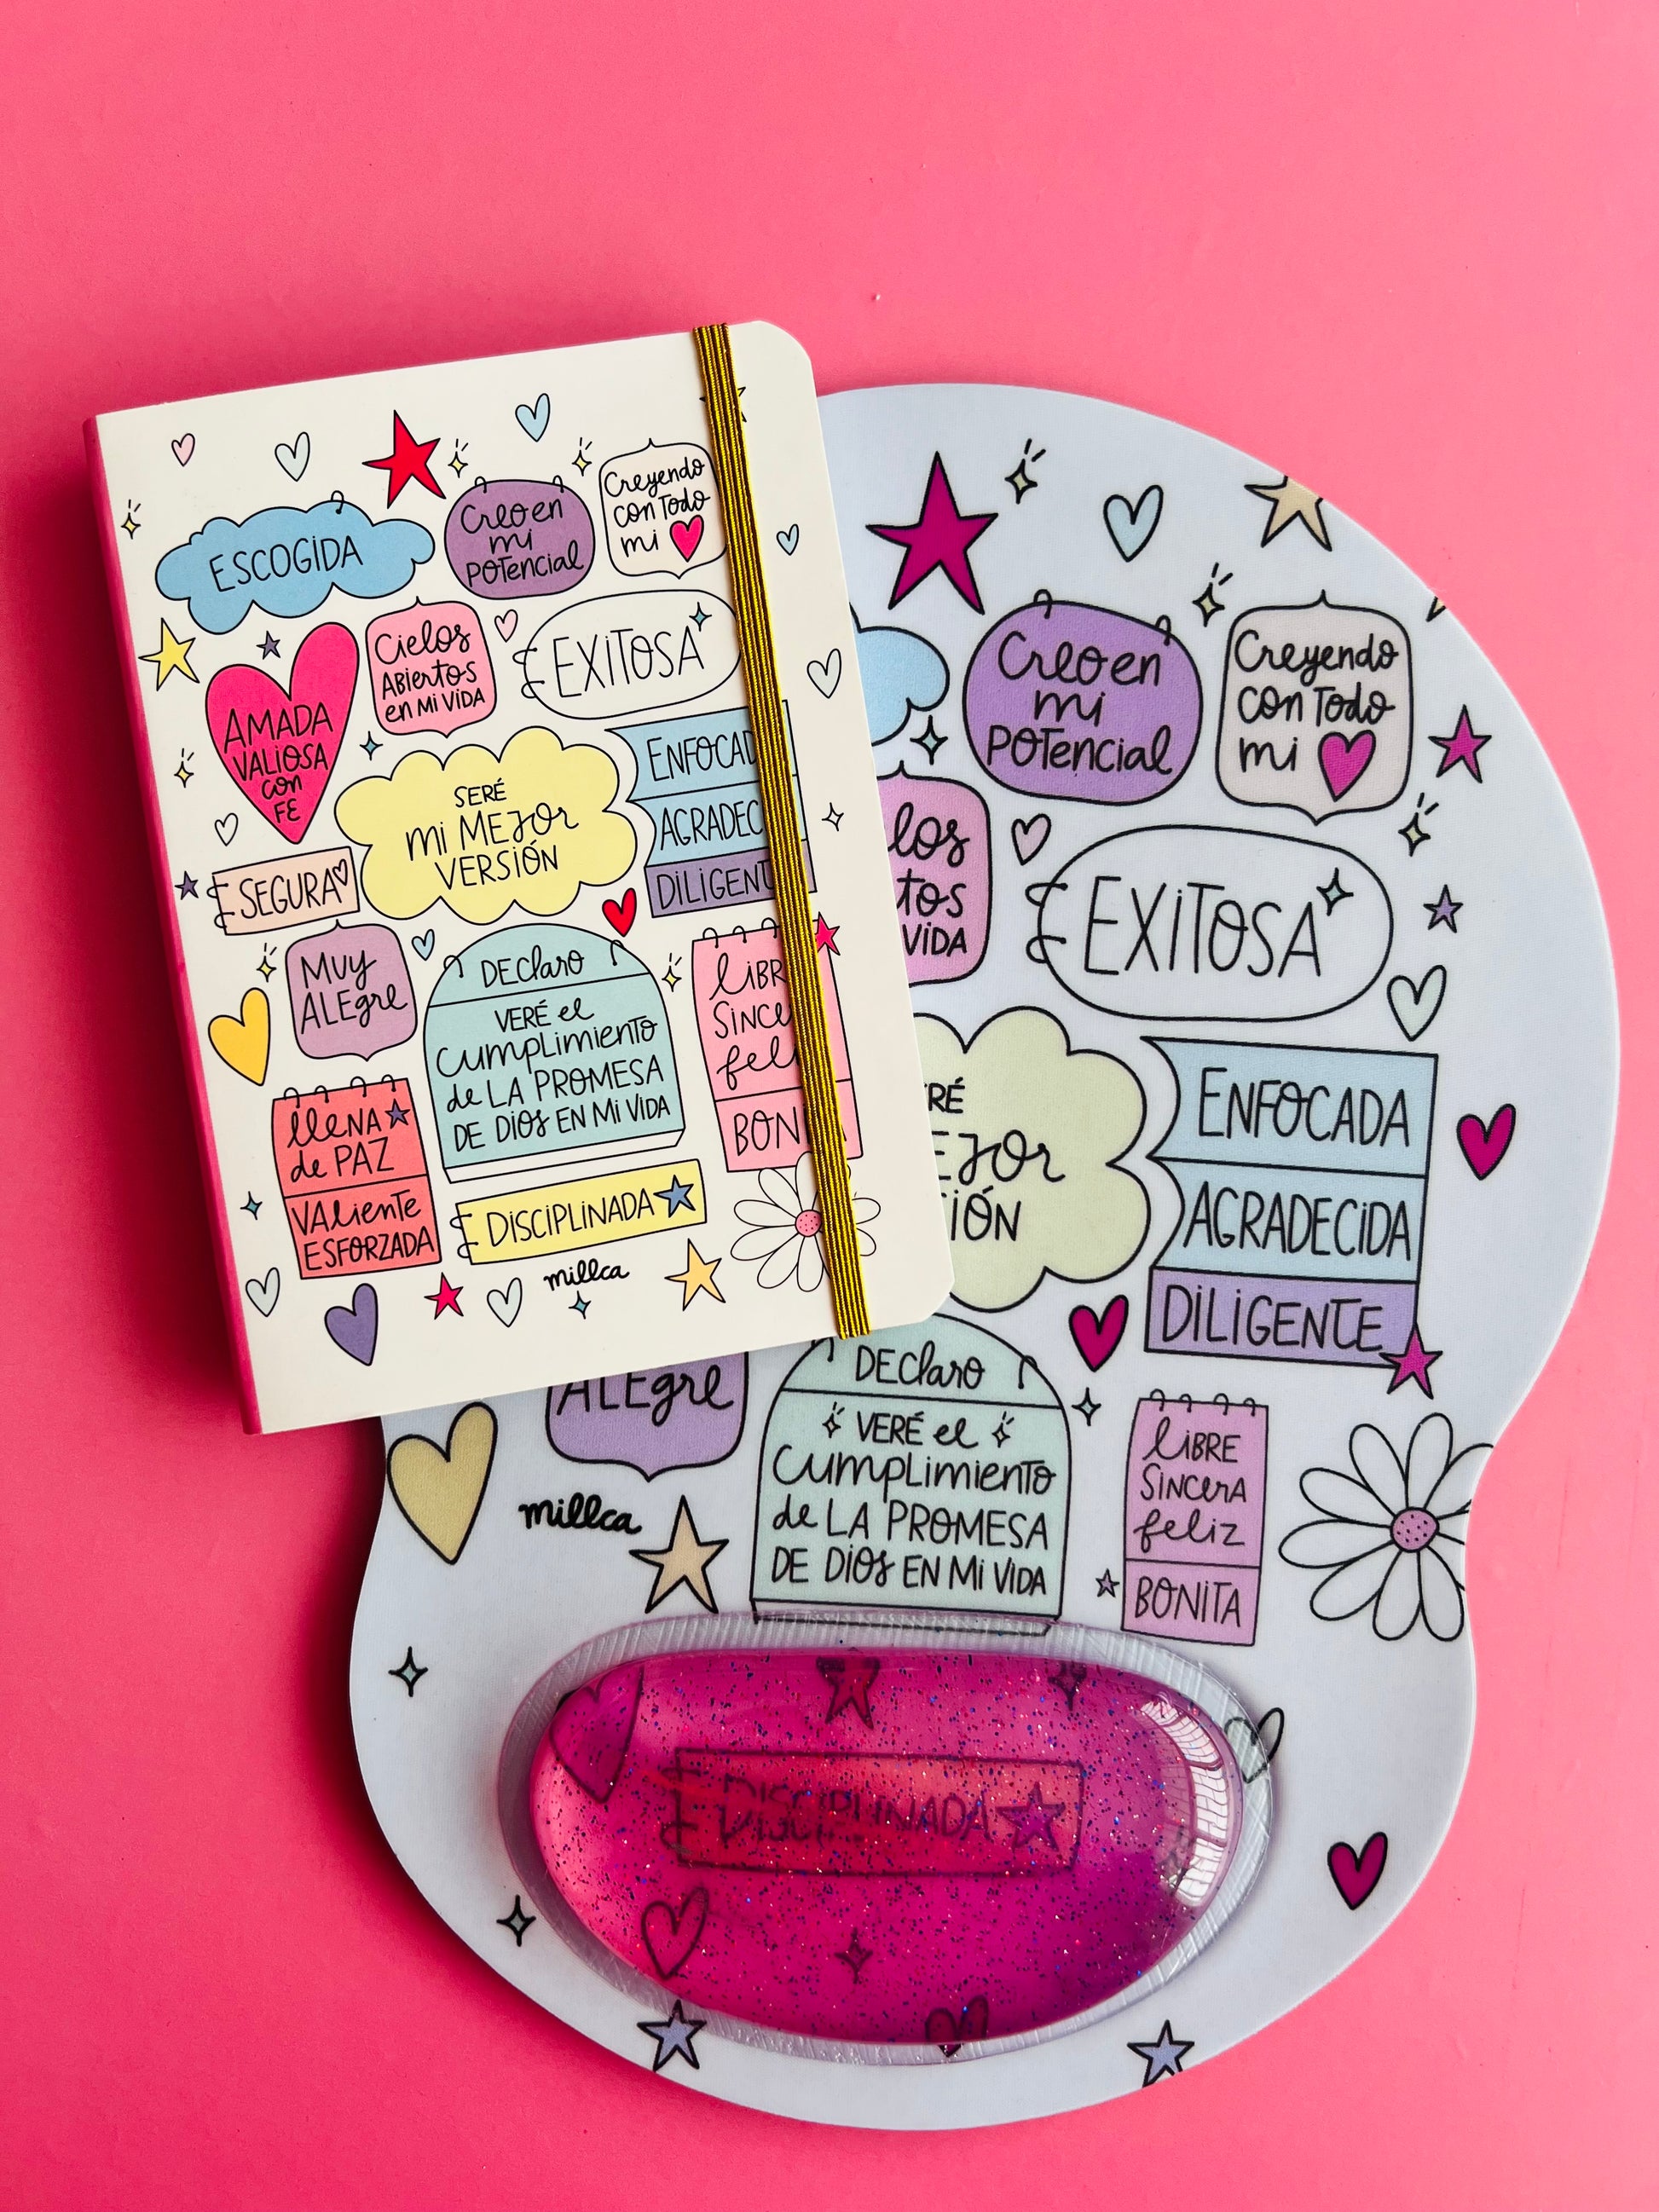 ESCOGIDA
Creo en
mi
POTencial
Creyendo
con Todo
mi
AMADA
VALIOSA
con
FE
Cielos
ABiertos
en Mi ViDA
EXITOSA
SERÉ
mi MEJOr
VERSIÓN
ENFOCAD
AGRADEC
DILIGENT
SEGURA
MUy
ALEgre
DEClaro
VERÉ el
Cumplimiento
de LA PROMESA
DE DiOs EN Mi ViDA
liBR
Since
fel
BON
lleNA
de PAZ
VALiente
ESFORZADA
DISCIPLINADA
millca
Creo en
mi
POTencial
Creyendo
con Todo
mi
los
tos
ViDA
EXITOSA
RÉ
EJOr
IÓN
ENFOCADA
AGRADECIDA
DILIGENTE
ALEgre
millca
DEClaro
VERÉ el
Cumplimiento
de LA PROMESA
DE DiOs EN Mi ViDA
liBRE
SinCerA
feliz
BONiTA
DISCIPLINADA